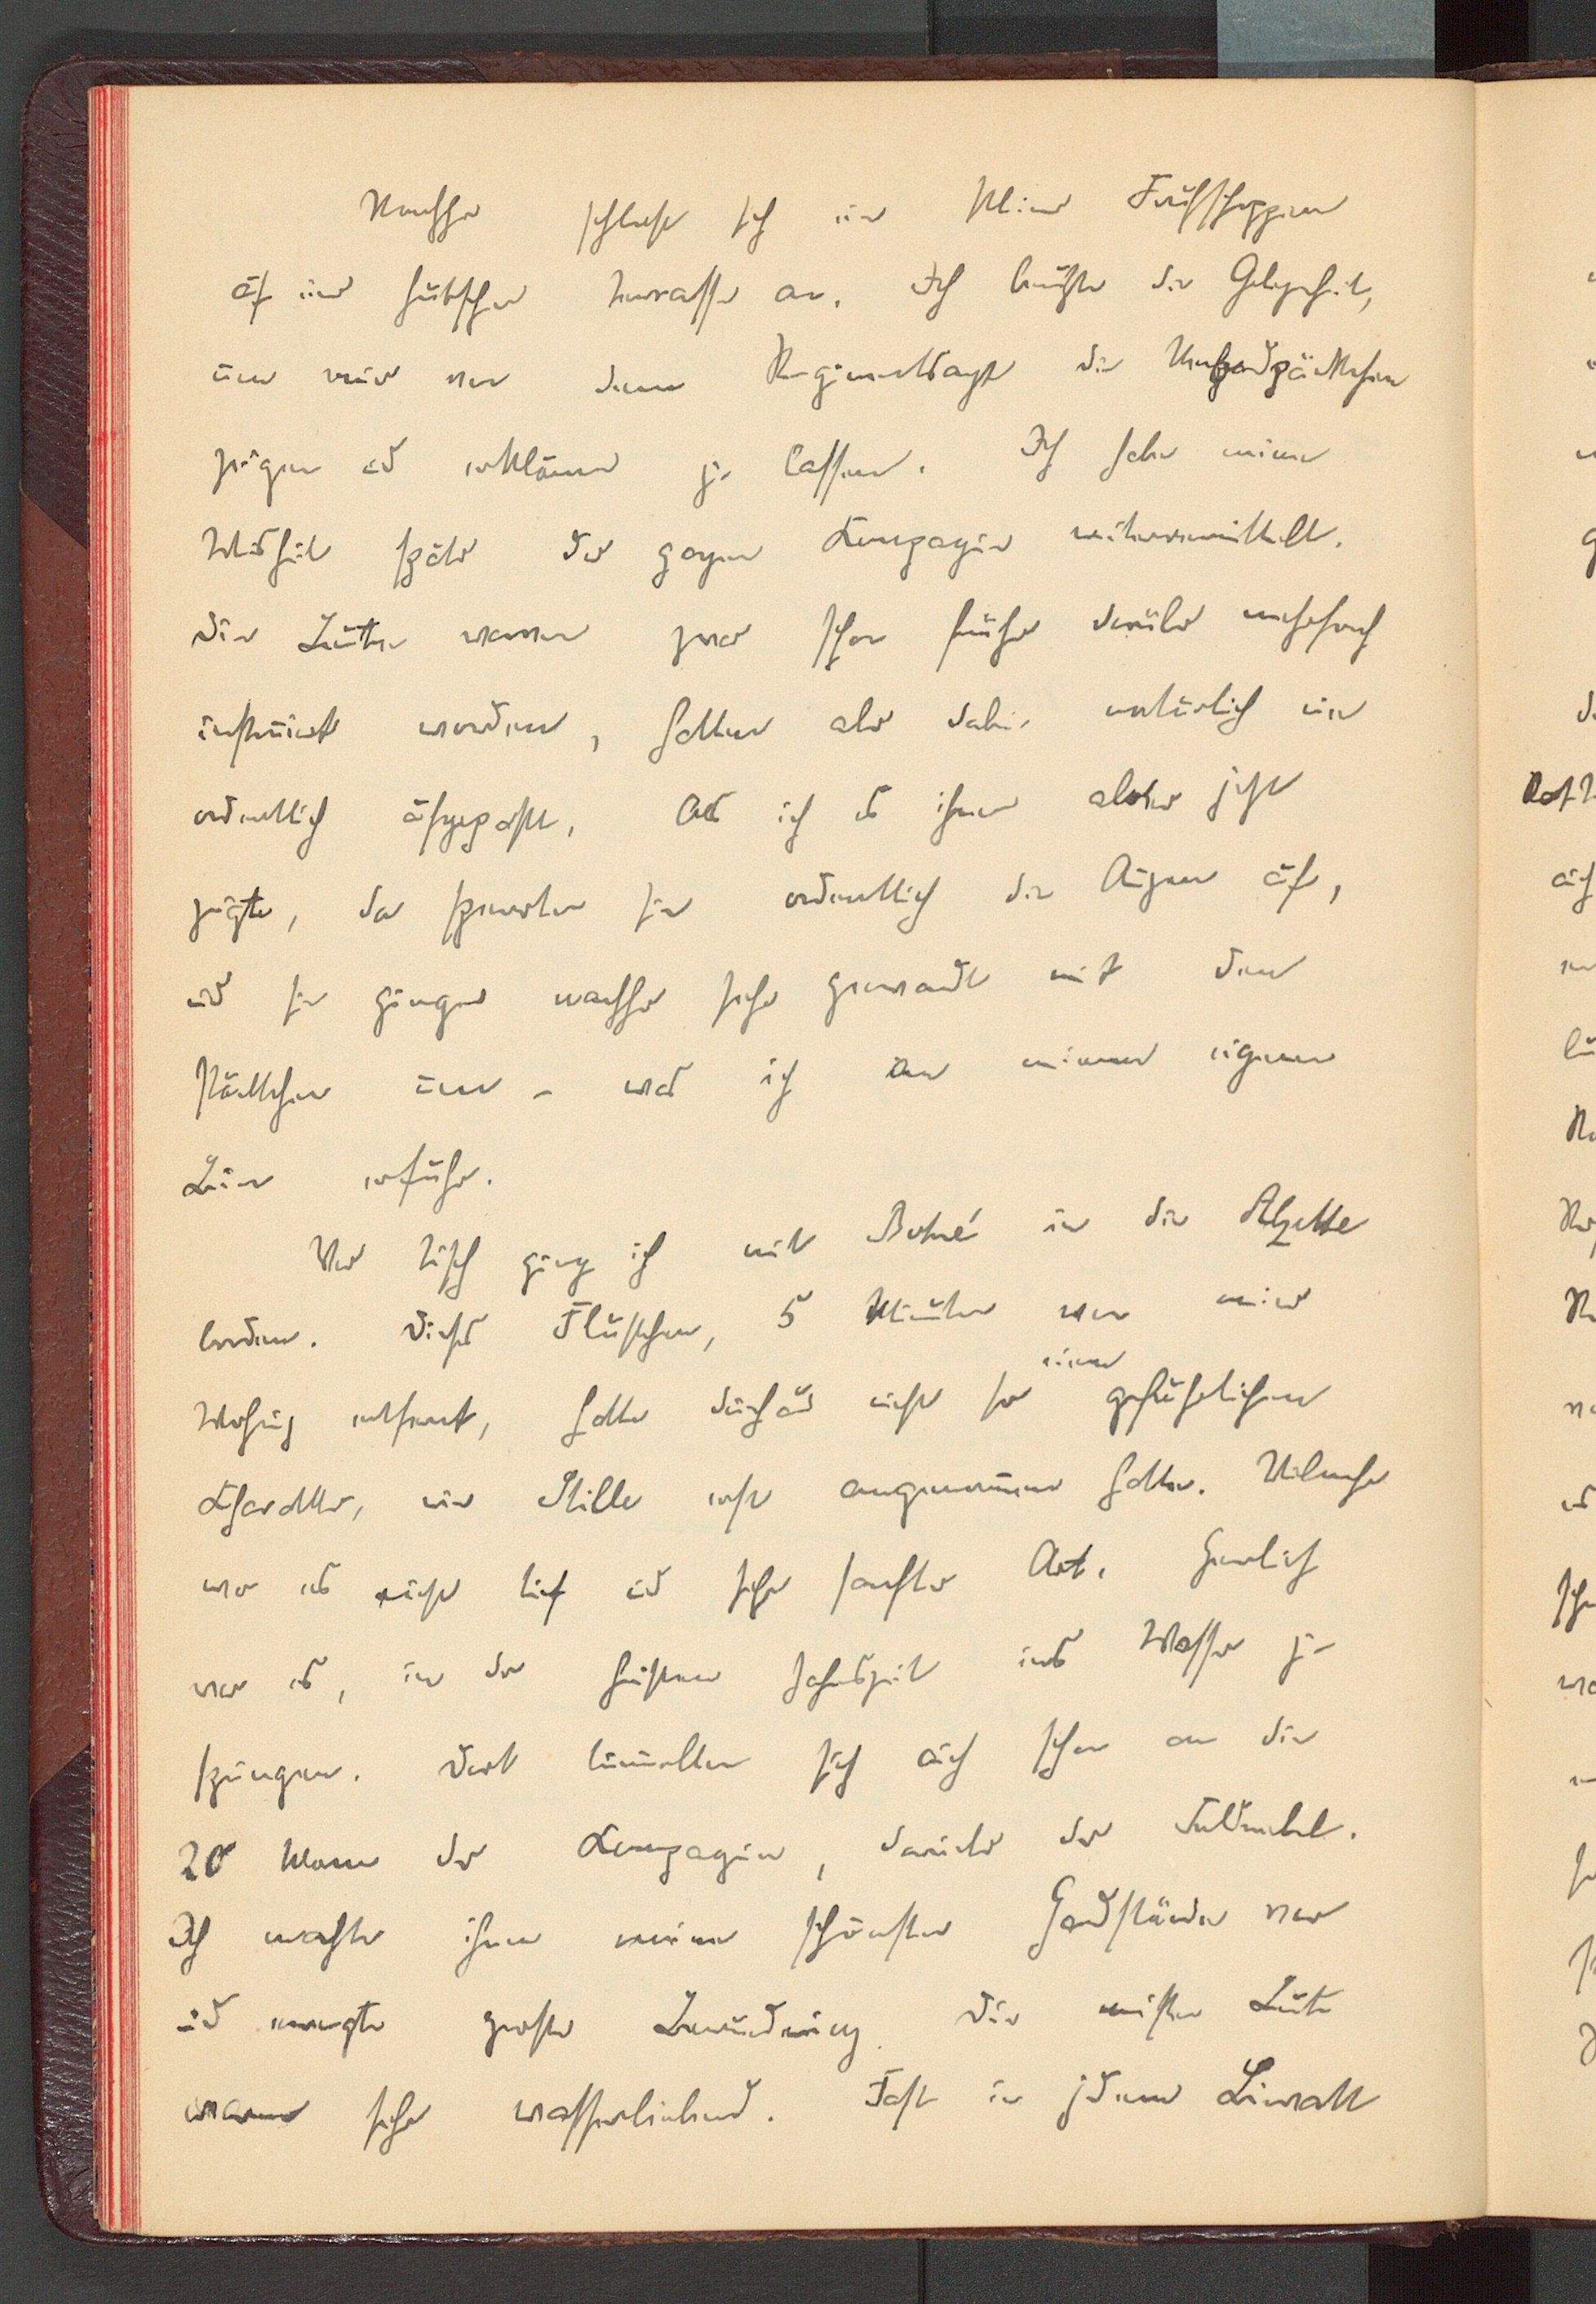 Nachher schloß sich ein kleiner Frühschoppen
auf einer hübschen Terrasse an. Ich benützte die Gelegenheit,
um mir von dem Regimentsarzt die Verbandpäckchen
zeigen und erklären zu lassen. Ich habe meine
Weisheit später der ganzen Kompagnie weitervermittelt.
Die Leute waren zwar schon früher darüber mehrfach
instruiert worden, hatten aber dabei natürlich nie
ordentlich aufgepaßt. Als ich es ihnen aber jetzt
zeigte, da sperrten sie ordentlich die Augen auf,
und sie gingen nachher sehr gewandt mit den
Päckchen um – was ich an meinem eigenen
Bein erfuhr.
Vor Tisch ging ich mit Botné in die Alzette
baden. Dieses Flüßchen, 5 Minuten von meiner
Wohnung entfernt, hatte durchaus nicht so einen gefährlichen
Charakter, wie Stiller erst angenommen hatte. Vielmehr
war es nicht tief und sehr sanfter Art. Herrlich
war es, in der heißen Jahreszeit ins Wasser zu
springen. Dort tummelten sich auch schon an die
20 Mann der Kompagnie, darunter der Feldwebel.
Ich machte ihnen meine schönsten Handstände vor
und erregte große Bewunderung. Die meisten Leute
waren sehr wasserliebend. Fast in jedem Biwak